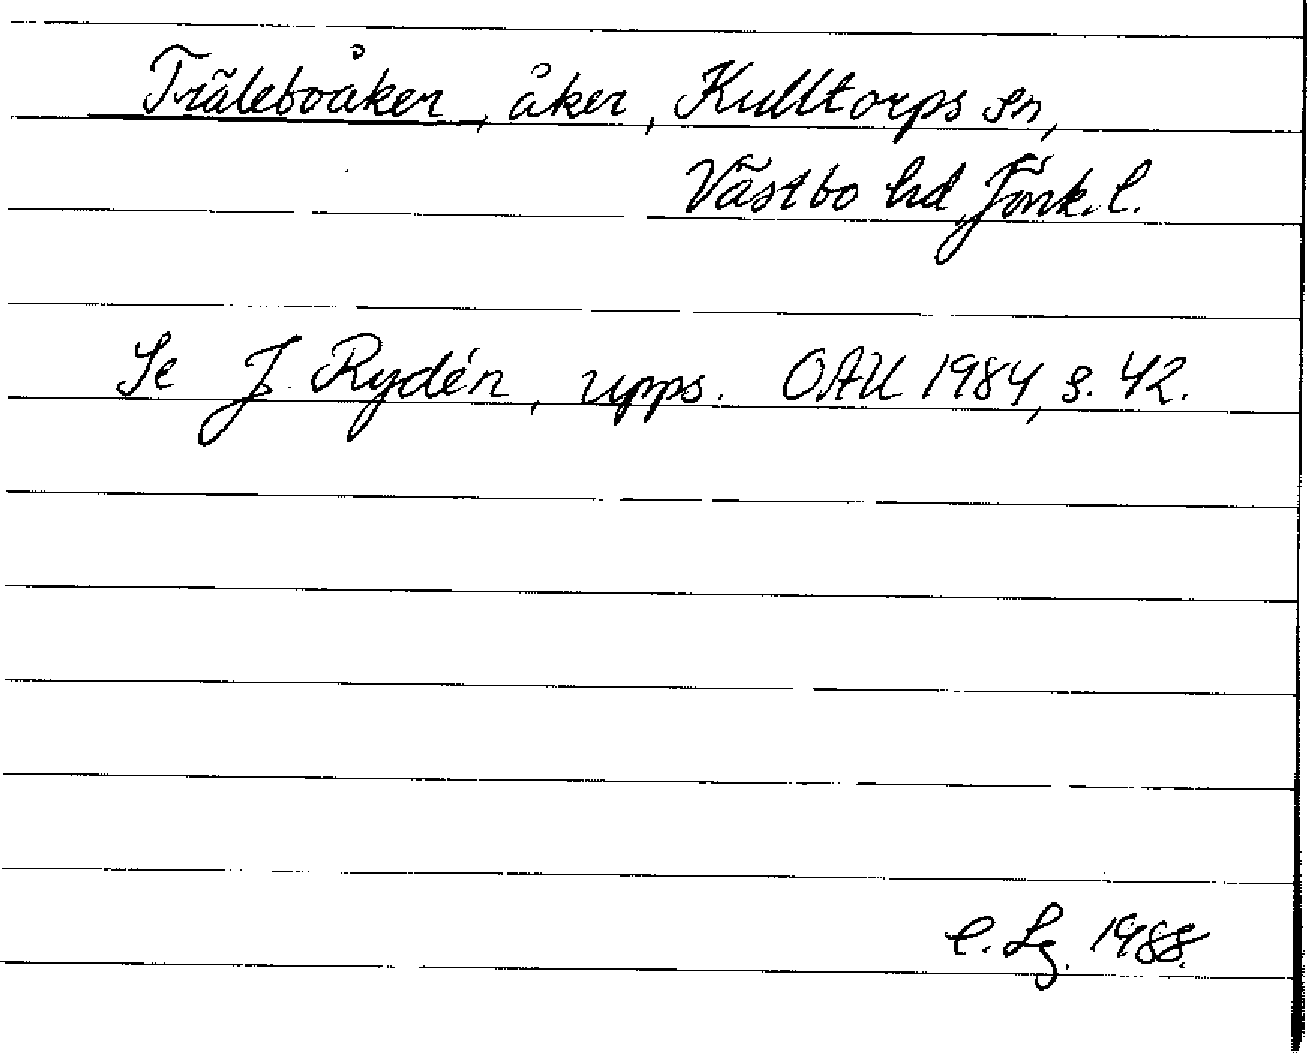 Träleboåker, åker, Kulltorps sn,
Västbo hd, Jönk. l.
Se J. Rydén, upps. OAU 1984, s. 42.
C. Lg. 1988.